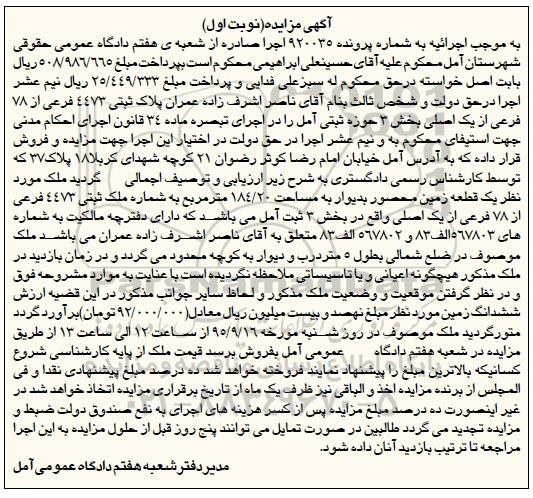 آگهی مزایده(نوبت اول)
به موجب اجرائیه به شماره پرونده ۹۲۰۰۳۵ اجرا صادره از شعبه ی هفتم دادگاه عمومی حقوقی
شهرستان آمل محکوم علیه آقای حسینعلی ابراهیمی محکوم است بپرداخت مبلغ ۵۰۸/۹۸۶/۶۶۵ ریال
بابت اصل خواسته درحق محکوم له سبزعلی فدایی و پرداخت مبلغ ۲۵/۴۴۹/۳۳۳ ریال نیم عشر
اجرا درحق دولت و شخص ثالث بنام آقای ناصر اشرف زاده عمران پلاک ثبتی ۴۴۷۳ فرعی از ۷۸
فرعی از یک اصلی بخش ۳ حوزه ثبتی آمل را در اجرای تبصره ماده ۳۴ قانون اجرای احکام مدنی
جهت استیفای محکوم به و نیم عشر اجرا در حق دولت در اختیار این اجرا جهت مزایده و فروش
قرار داده که به آدرس آمل خیابان امام رضا کوثر رضوان ۲۱ کوچه شهدای کربلا۱۸ پلاک۳۷ که
توسط کارشناس رسمی دادگستری به شرح زیر ارزیابی و توصیف اجمالی گردید ملک مورد
نظر یک قطعه زمین محصور بدیوار به مساحت ۱۸۴/۲۰ مترمربع به شماره ملک ثبتی ۴۴۷۳ فرعی
از ۷۸ فرعی از یک اصلی واقع در بخش ۳ ثبت آمل می باشد که دارای دفترچه مالکیت به شماره
های ۵۶۷۸۰۳الف۸۳ و ۵۶۷۸۰۲ الف۸۳ متعلق به آقای ناصر اشرف زاده عمران می باشد ملک
موصوف در ضلع شمالی بطول ۵ متردرب و دیوار به کوچه محدود می گردد و در زمان بازدید در
ملک مذکور هیچگونه اعیانی و یا تاسیساتی ملاحظه نگردیده است با عنایت به موارد مشروحه فوق
و در نظر گرفتن موقعیت و وضعیت ملک مذکور و لحاظ سایر جوانب مذکور در این قضیه ارزش
ششدانگ زمین مورد نظر مبلغ نهصد و بیست میلیون ریال معادل(۹۲/۰۰۰/۰۰۰ تومان)برآورد گردد
متورگردید ملک موصوف در روز شنبه مورخه ۹۵/۹/۱۶ از ساعت ۱۲ الی ساعت ۱۳ از طریق
مزایده در شعبه هفتم دادگاه عمومی آمل بفروش برسد قیمت ملک از پایه کارشناسی شروع
کسانیکه بالاترین مبلغ را پیشنهاد نمایند فروخته خواهد شد ده درصد مبلغ پیشنهادی نقدا و فی
المجلس از برنده مزایده اخذ و الباقی نیز ظرف یک ماه از تاریخ برقراری مزایده اتخاذ خواهد شد در
غیر اینصورت ده درصد مبلغ مزایده پس از کسر هزینه های اجرای به نفع صندوق دولت ضبط و
مزایده تجدید می گردد طالبین در صورت تمایل می توانند پنج روز قبل از حلول مزایده به این اجرا
مراجعه تا ترتیب بازدید آنان داده شود.
مدیر دفتر شعبه هفتم دادگاه عمومی آمل